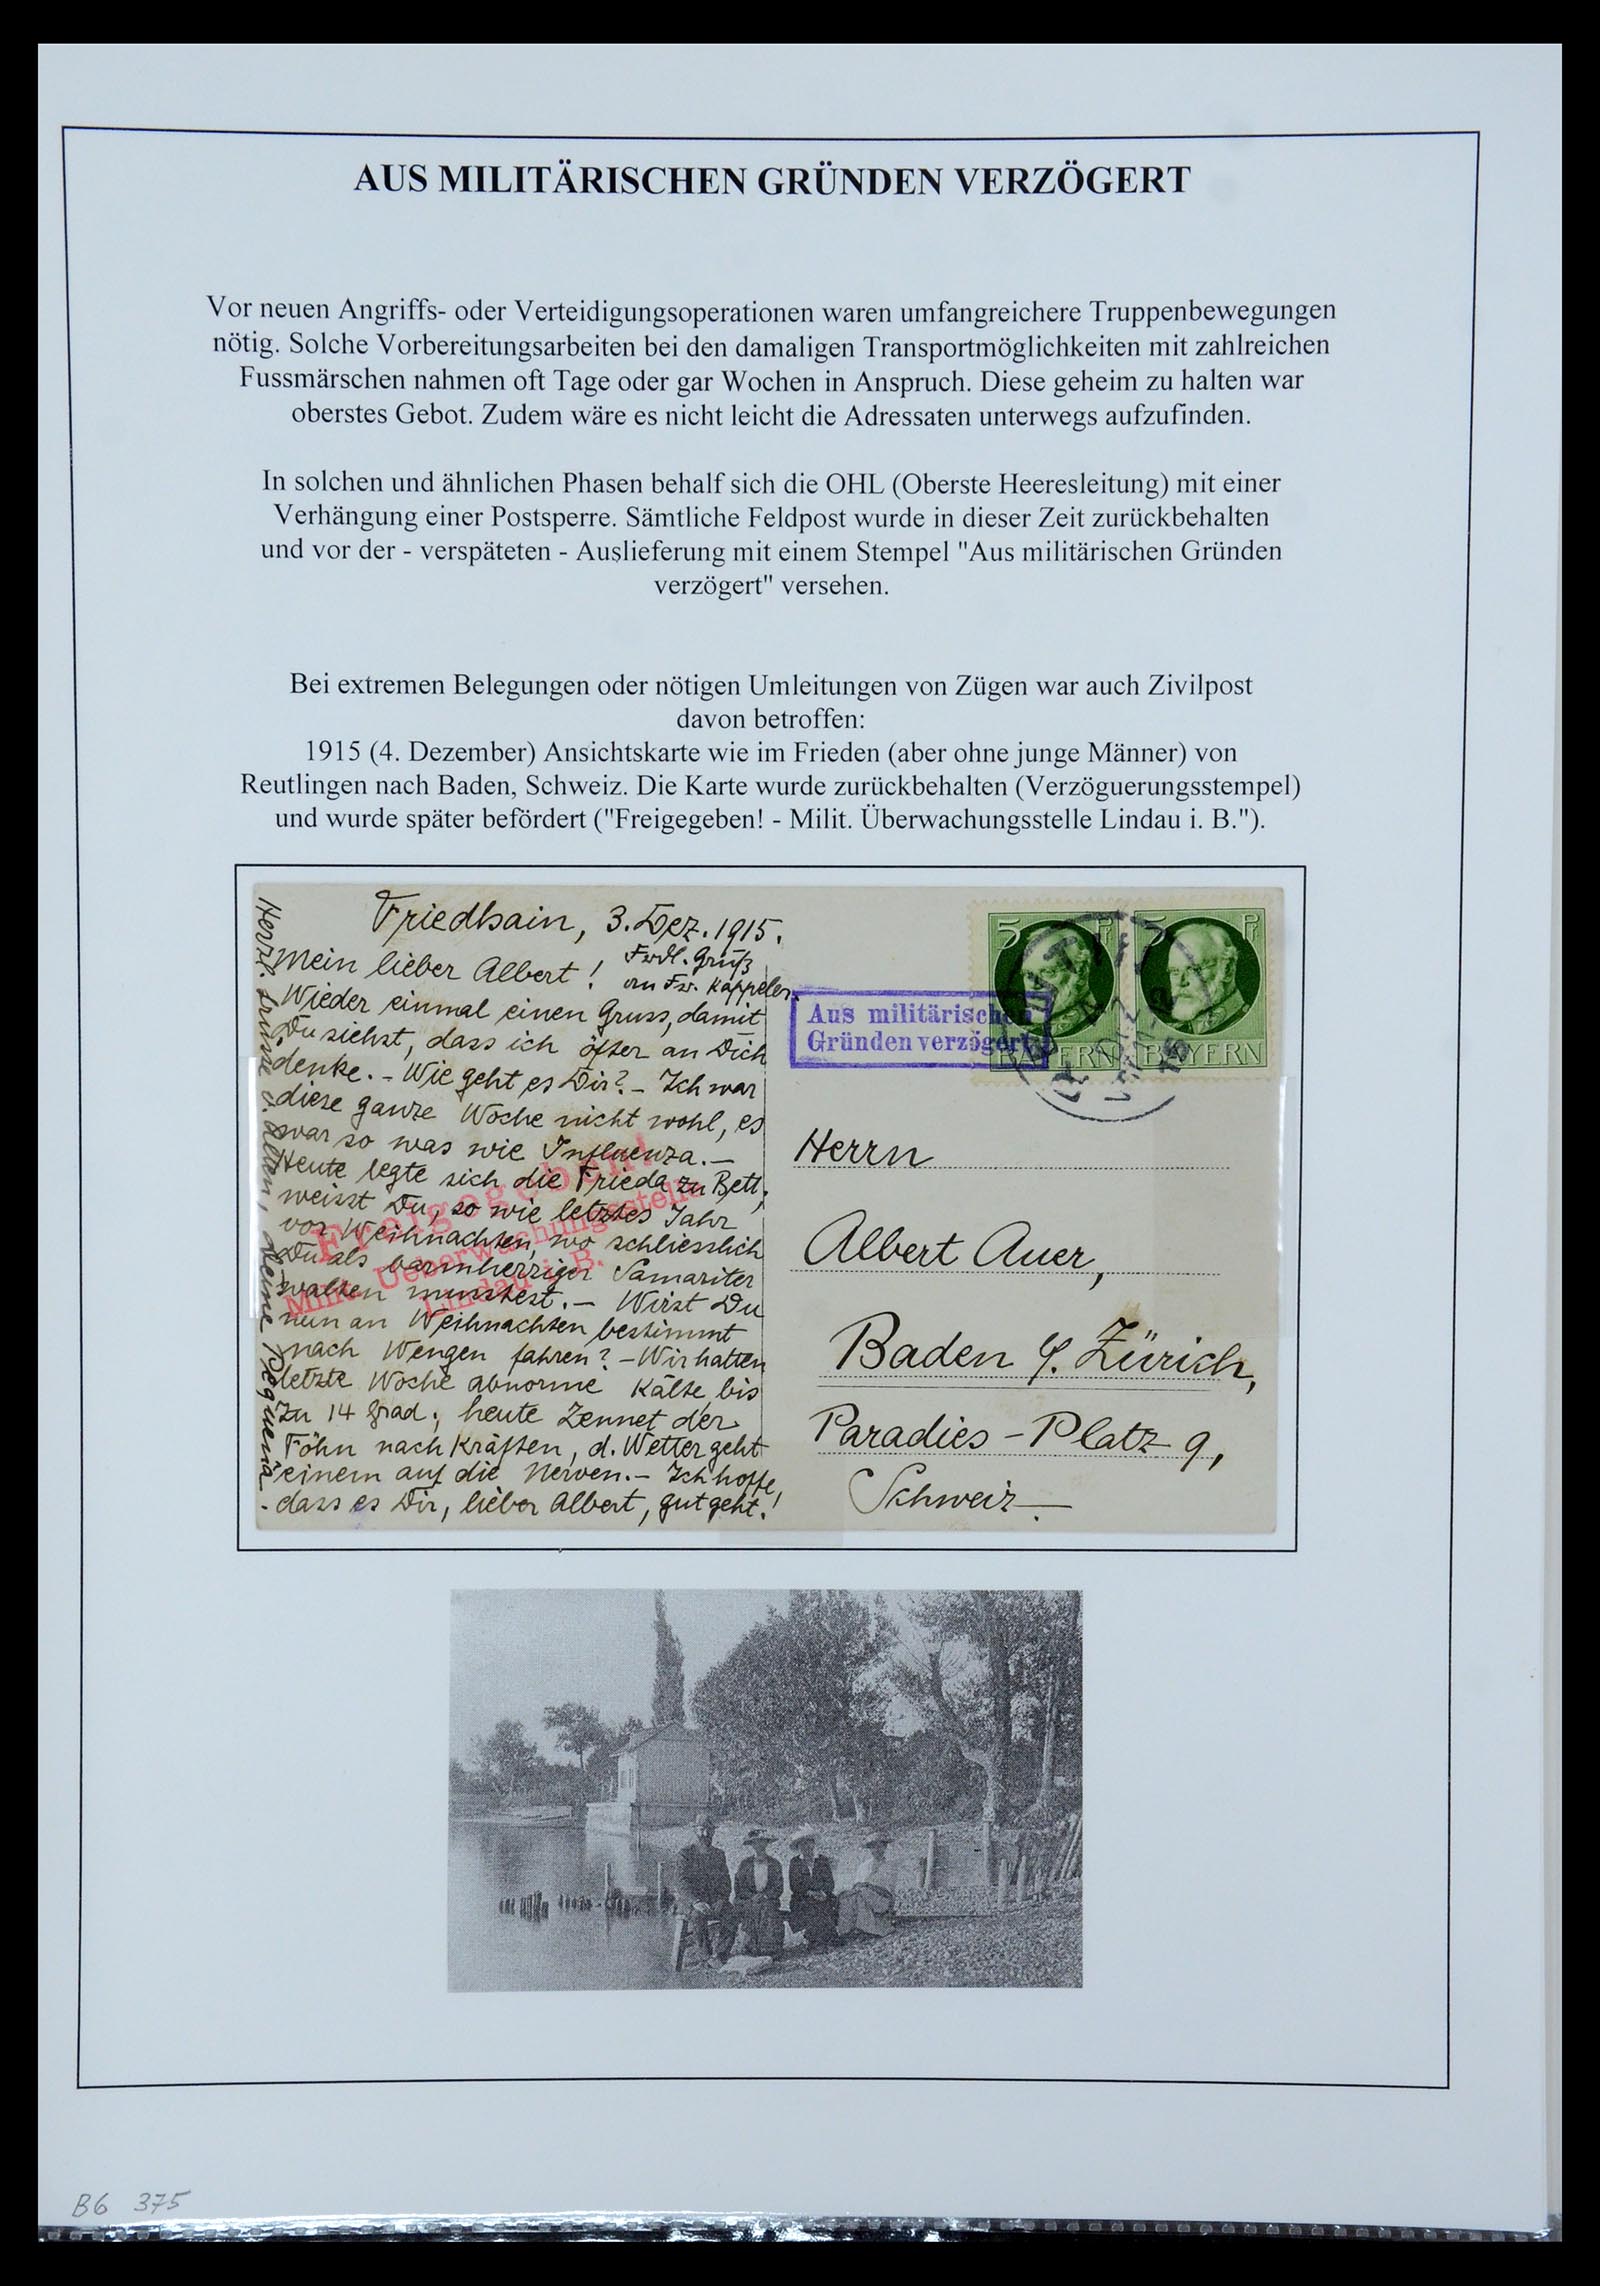 AUS MILITÄRISCHEN GRÜNDEN VERZÖGERT
Vor neuen Angriffs- oder Verteidigungsoperationen waren umfangreichere Truppenbewegungen
nötig. Solche Vorbereitungsarbeiten bei den damaligen Transportmöglichkeiten mit zahlreichen
Fussmärschen nahmen oft Tage oder gar Wochen in Anspruch. Diese geheim zu halten war
oberstes Gebot. Zudem wäre es nicht leicht die Adressaten unterwegs aufzufinden.
In solchen und ähnlichen Phasen behalf sich die OHL (Oberste Heeresleitung) mit einer
Verhängung einer Postsperre. Sämtliche Feldpost wurde in dieser Zeit zurückbehalten
und vor der - verspäteten - Auslieferung mit einem Stempel "Aus militärischen Gründen
verzögert" versehen.
Bei extremen Belegungen oder nötigen Umleitungen von Zügen war auch Zivilpost
davon betroffen:
1915 (4. Dezember) Ansichtskarte wie im Frieden (aber ohne junge Männer) von
Reutlingen nach Baden, Schweiz. Die Karte wurde zurückbehalten (Verzöguerungsstempel)
und wurde später befördert ("Freigegeben! - Milit. Überwachungsstelle Lindau i. B.").
Friedhain, 3. Dez. 1915.
Mein lieber Albert!
Frdl. Gruß
an Fr. Kappeler.
Wieder einmal einen Gruss, damit
Du siehst, dass ich öfter an Dich
denke. - Wie geht es Dir? - Ich war
diese ganze Woche nicht wohl, es
war so was wie Influenza. -
Heute legte sich die Frieda zu Bett,
weisst Du, so wie letztes Jahr
vor Weihnachten, wo schliesslich
Du als barmherziger Samariter
walten musstest. - Wirst Du
nun an Weihnachten bestimmt
nach Wengen fahren? - Wir hatten
letzte Woche abnorme Kälte, bis
zu 14 Grad; heute Zennet der
Föhn nach Kräften, d. Wetter geht
einem auf die Nerven. - Ich hoffe,
dass es Dir, lieber Albert, gut geht!
Herzl. Grüsse Deine
Freigegeben!
Milit. Ueberwachungsstelle
Lindau i. B.
5 Pf
5 Pf
BAYERN
BAYERN
Aus militärischen
Gründen verzögert
Herrn
Albert Auer,
Baden b/. Zürich,
Paradies-Platz 9,
Schweiz
B6 375